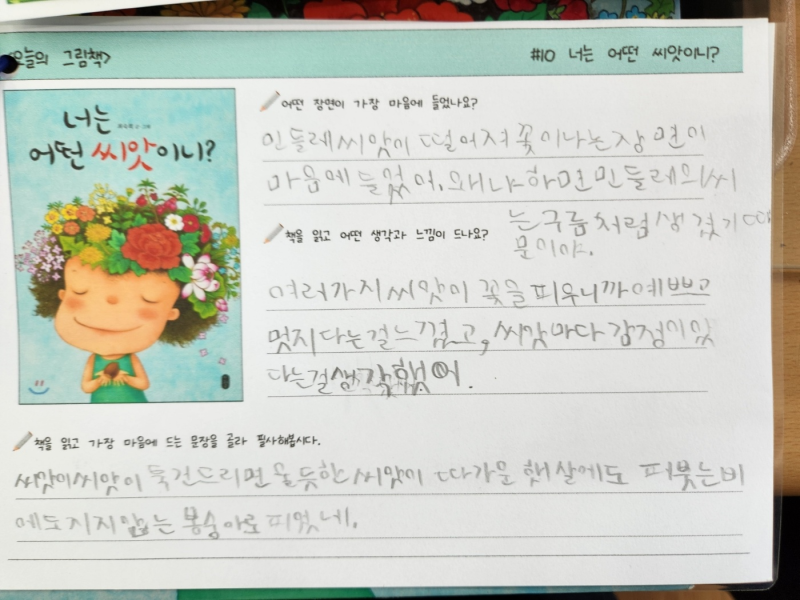 오늘의 그림책>
#10 너는 어떤 씨앗이니?
너는
어떤 씨앗이니?
어떤 장면이 가장 마음에 들었나요?
민들레씨앗이 떨어져 꽃이나는장면이
마음에들었어. 왜냐하면민들레의씨
는구름처럼생겼기때
문이야.
책을 읽고 어떤 생각과 느낌이 드나요?
여러가지씨앗이 꽃을피우니까예쁘고
멋지다는걸느꼈고, 씨앗마다감정이있
다는걸생각했어.
책을 읽고 가장 마음에 드는 문장을 골라 필사해봅시다.
씨앗이씨앗이 툭건드리면울듯한씨앗이 따가운햇살에도 퍼붓는비
에도지지않는봉숭아로피었네.